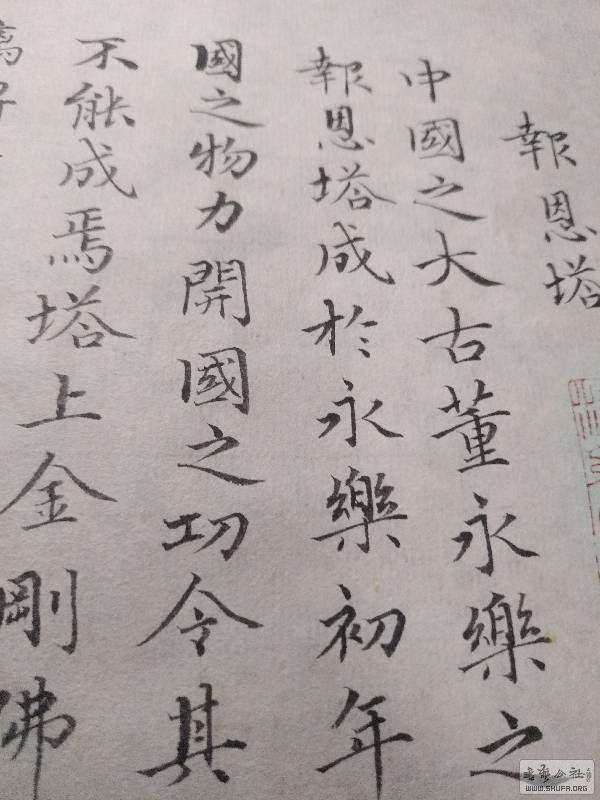 報恩塔
中國之大古董永樂之
報恩塔成於永樂初年
國之物力開國之功令其
不能成焉塔上金剛佛
WWW.SHUFA.ORG